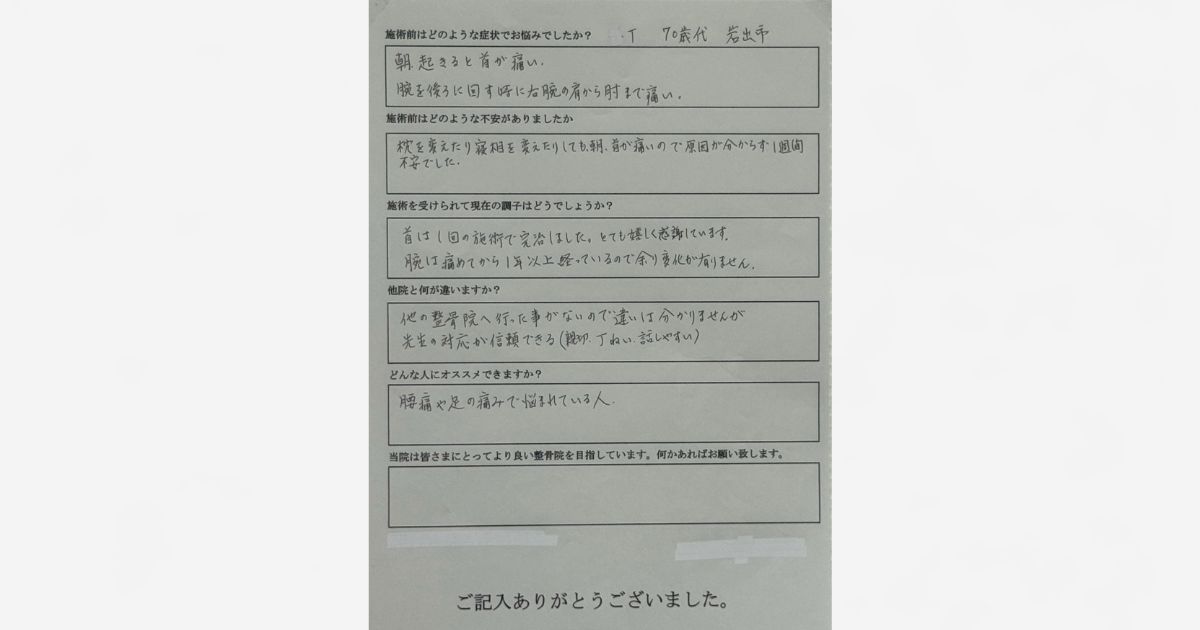 施術前はどのような症状でお悩みでしたか？ .T 70歳代 岩出市
朝、起きると首が痛い.
腕を後ろに回す時に右腕の肩から肘まで痛い。
施術前はどのような不安がありましたか
枕を変えたり寝相を変えたりしても、朝、首が痛いので原因が分からず1週間
不安でした.
施術を受けられて現在の調子はどうでしょうか？
首は1回の施術で完治しました。とても嬉しく感謝しています.
腕は痛めてから1年以上経っているので余り変化が有りません.
他院と何が違いますか？
他の整骨院へ行った事がないので違いは分かりませんが
先生の対応が信頼できる(親切.丁ねい.話しやすい)
どんな人にオススメできますか？
腰痛や足の痛みで悩まれている人.
当院は皆さまにとってより良い整骨院を目指しています。何かあればお願い致します。
ご記入ありがとうございました。